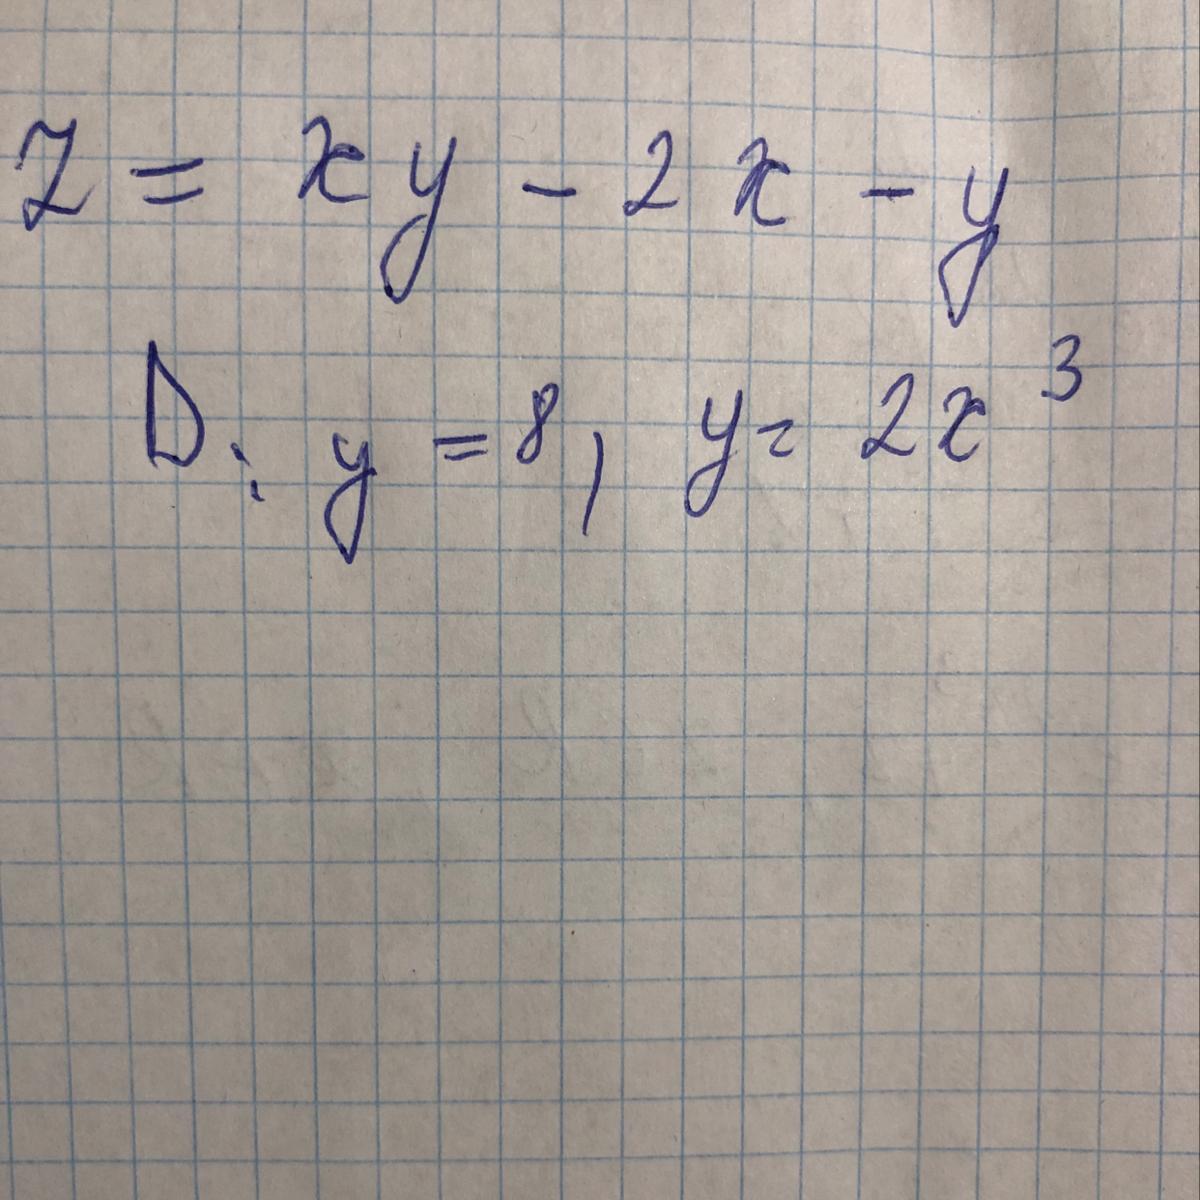 Z = xy - 2x - y
D: y = 8, y = 2x³